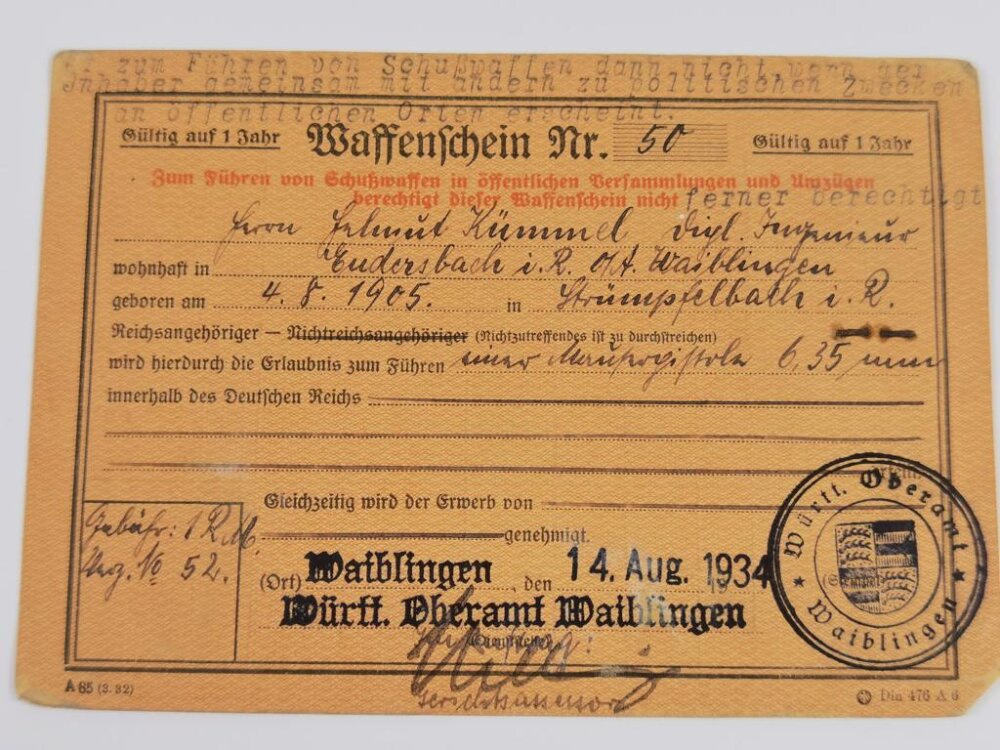 zum Führen von Schußwaffen dann nicht wenn der
Inhaber gemeinsam mit andern zu politischen Zwecken
an öffentlichen Orten erscheint.
Gültig auf 1 Jahr Waffenschein Nr. 50 Gültig auf 1 Jahr
Zum Führen von Schußwaffen in öffentlichen Versammlungen und Umzügen
berechtigt dieser Waffenschein nicht ferner berechtigt
Herrn Helmut Kümmel Dipl. Ingenieur
wohnhaft in Endersbach i. R. O/A. Waiblingen
geboren am 4. 8. 1905. in Strümpfelbach i. R.
Reichsangehöriger — Nichtreichsangehöriger (Nichtzutreffendes ist zu durchstreichen)
wird hierdurch die Erlaubnis zum Führen einer Mauserpistole 6,35 mm
innerhalb des Deutschen Reichs
Gleichzeitig wird der Erwerb von
genehmigt.
Gebühr: 1 R.M.
No 52.
(Ort) Waiblingen, den 14. Aug. 1934
Württ. Oberamt Waiblingen
Württ. Oberamt
Waiblingen
Gerichtsassessor
A 85 (3. 32)
Din 476 A 6